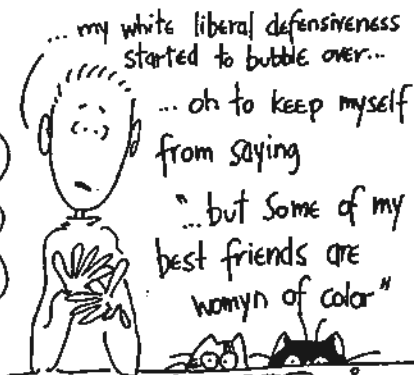 ... my white liberal defensiveness
started to bubble over...
... oh to keep myself
from saying
"...but some of my
best friends are
womyn of color"